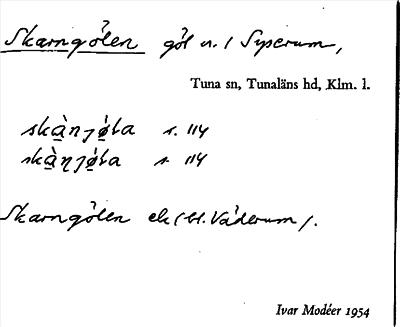 Skarngölen göl n. / Syserum,
Tuna sn, Tunaläns hd, Klm. l.
skànjǿla s. 114
skàŋjǿla s 114
Skarngölen ek (bl. Väderum).
Ivar Modéer 1954